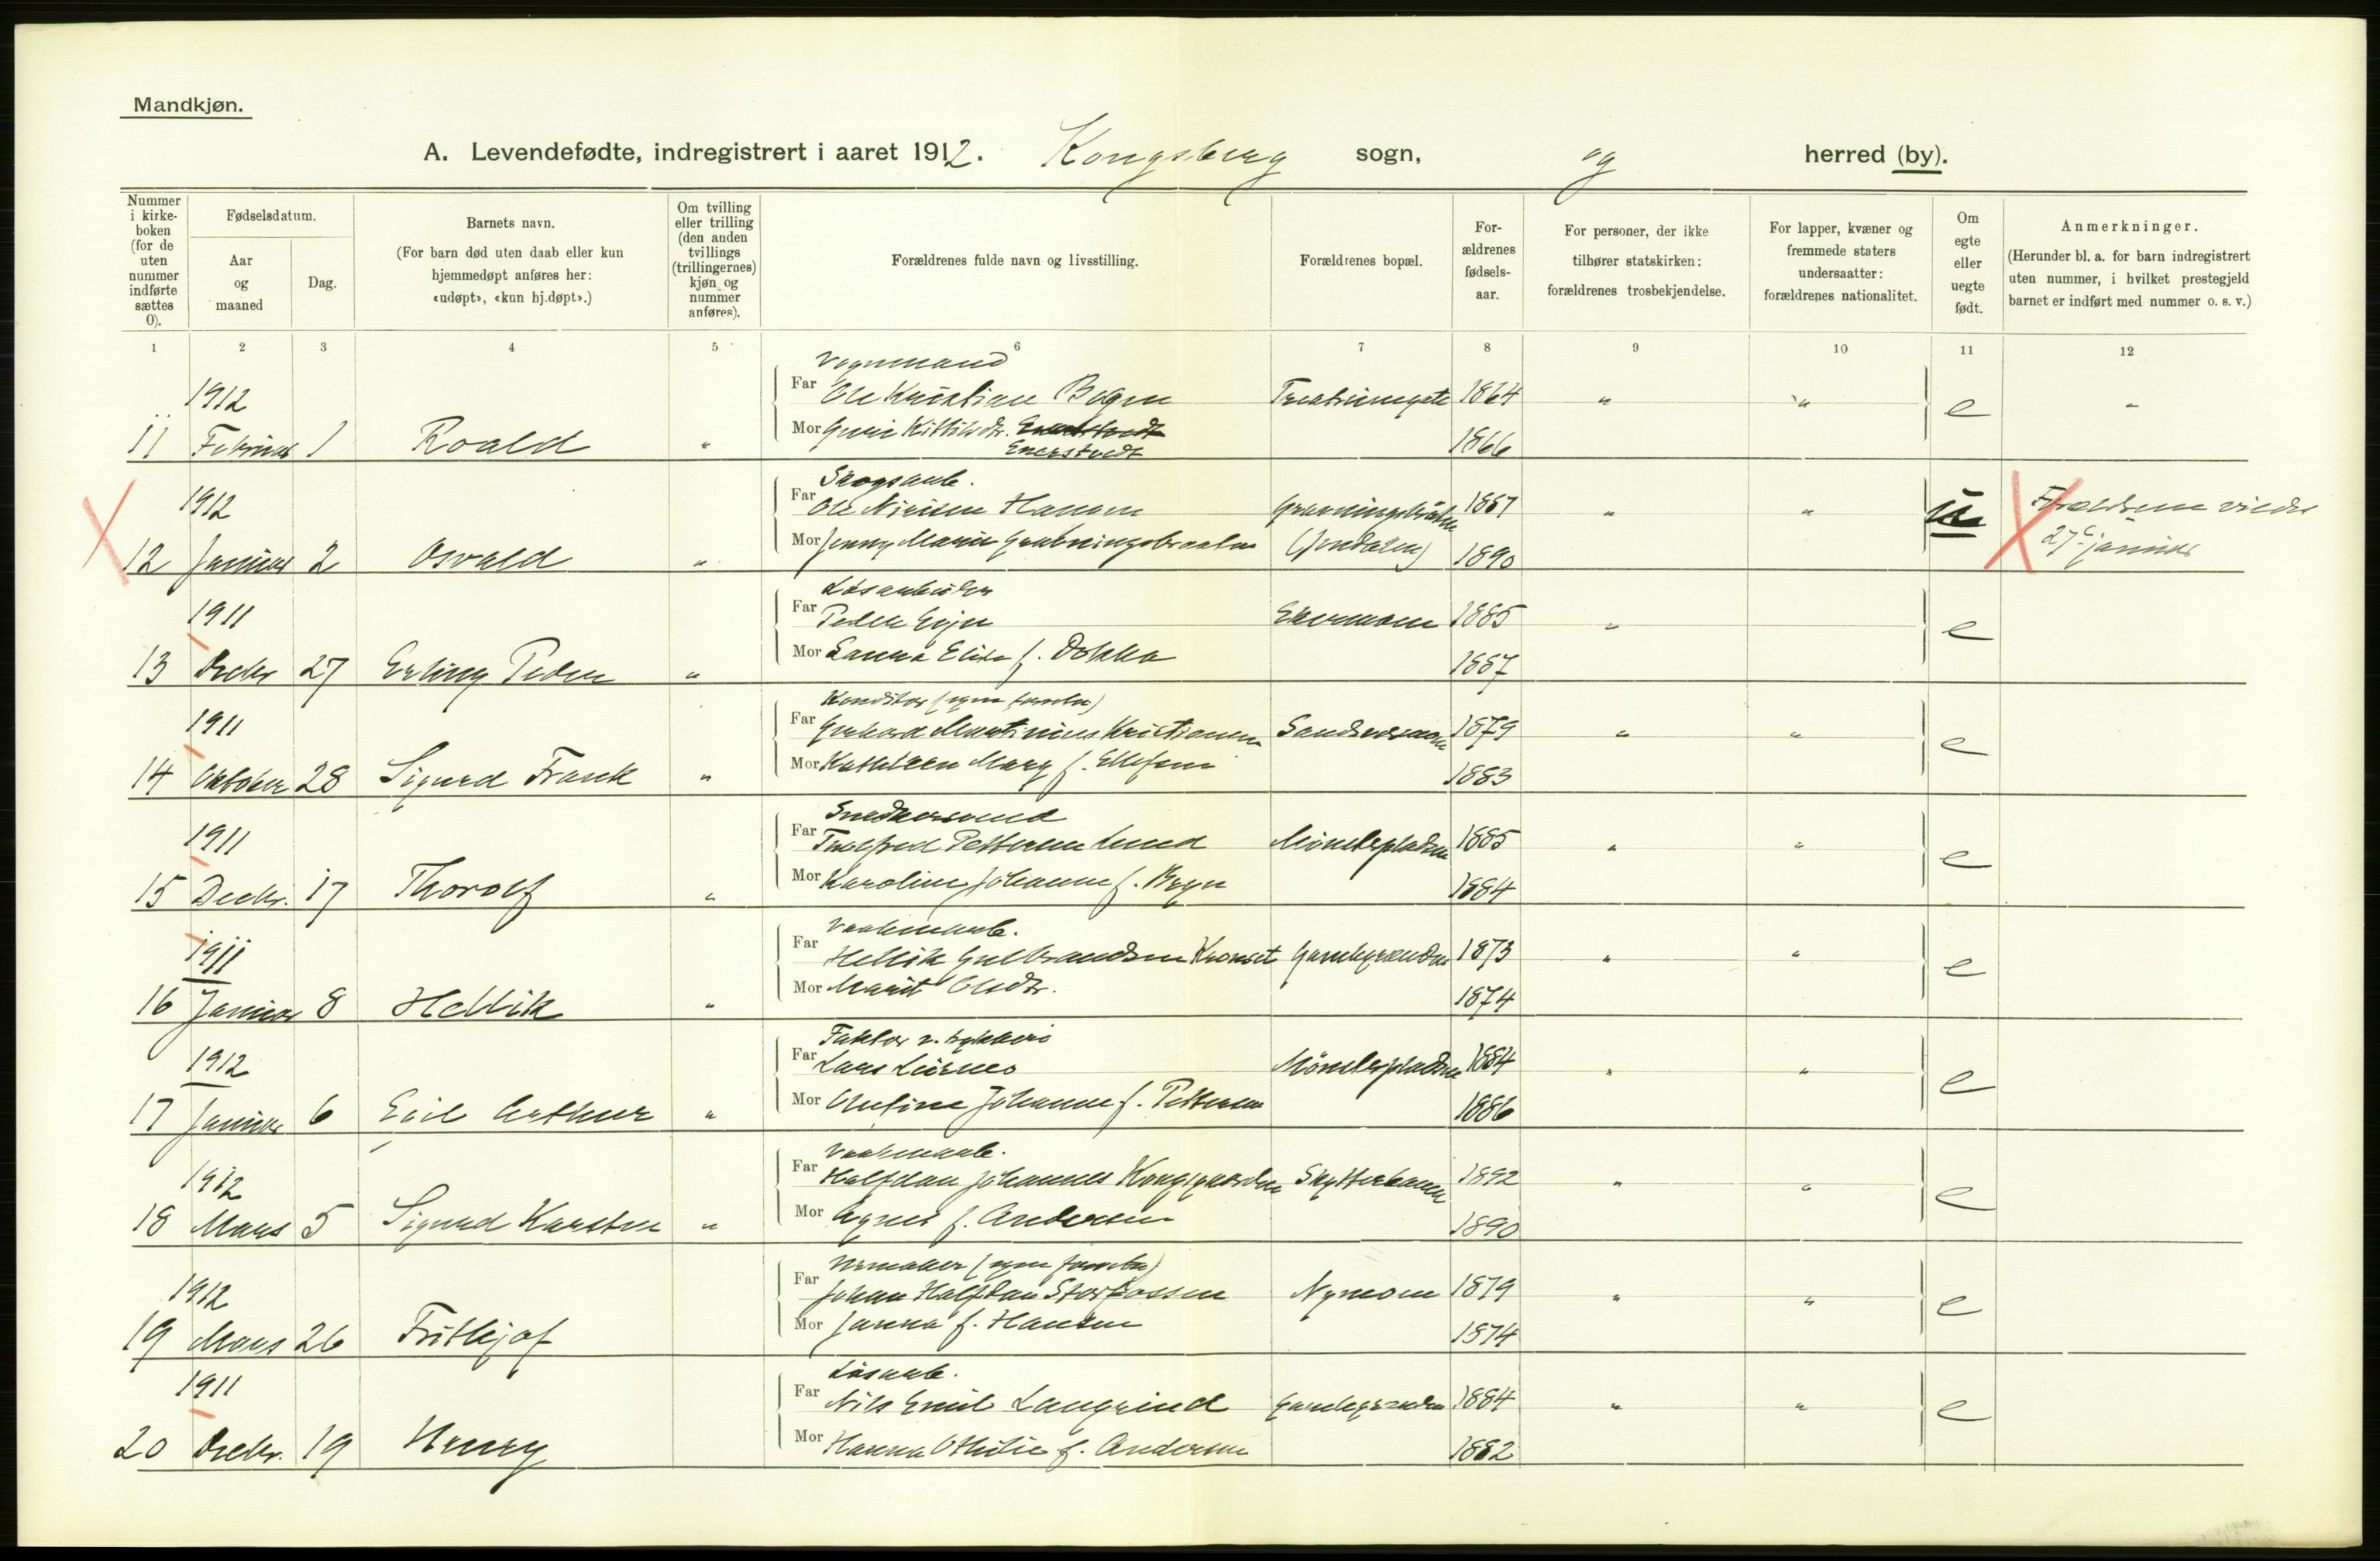 Mandkjøn.
A. Levendefødte, indregistrert i aaret 1912. Kongsberg sogn, og herred (by).
Nummer i kirke- boken (for de uten nummer indførte sættes 0).
Fødselsdatum.
Aar og maaned
Dag.
Barnets navn.
(For barn død uten daab eller kun hjemmedøpt anføres her: «udøpt», «kun hj.døpt».)
Om tvilling eller trilling (den anden tvillings (trillingernes) kjøn og nummer anføres).
Forældrenes fulde navn og livsstilling.
Forældrenes bopæl.
For- ældrenes fødsels- aar.
For personer, der ikke tilhører statskirken: forældrenes trosbekjendelse.
For lapper, kvæner og fremmede staters undersaatter: forældrenes nationalitet.
Om egte eller uegte født.
Anmerkninger.
(Herunder bl. a. for barn indregistrert uten nummer, i hvilket prestegjeld barnet er indført med nummer o. s. v.)
1 2 3 4 5 6 7 8 9 10 11 12
Vognmand
1912 Far Ole Kristian Bogen 1864 " " e "
11 Februar 1 Roald " Mor Gunie Kittilsdr. Enerstvedt 1866
Skogsarb.
1912 Far Ole Nirisen Hansen 1887 " " ue Forældrene viede
12 Januar 2 Osvald " Mor Jenny Marie Grubningsbraaten (Jondalen) 1890 27de januar
Løsarbeider
1911 Far Peder Eijn 1885 " e
13 Decbr 27 Erling Peder " Mor Laura Elise f. Dokka 1887
Konditor (egen forretn)
1911 Far Gerhard Martinius Kristiansen Sandsværmoen 1879 " " e
14 Oktober 28 Sigurd Frank " Mor Kathleen Mary f. Ellefsen 1883
Snedkersvend
1911 Far Pettersen Lund Mønterpladsen 1885 " " e
15 Decbr. 17 Thorolf " Mor Karoline Johanne f. Bryn 1884
Vaabenarb.
1911 Far Hellik Gulbrandsen Kronset 1873 " " e
16 Januar 8 Hellik " Mor Marit Olsdr. 1874
Faktor v. trykkeri
1912 Far Lars Mønterpladsen 1884 " " e
17 Januar 6 Egil Arthur " Mor Olufine Johanne f. Pettersen 1886
Vaabenarb.
1912 Far Halfdan Johannes Kongsgaarden Skytterbanen 1892 " " e
18 Mars 5 Sigurd Karsten " Mor Agnes f. Andersen 1890
Urmaker (egen forretn)
1912 Far Johan Halfdan Storfossen Nymoen 1879 " " e
19 Mars 26 Frithjof Mor Janna f. Hansen 1874
Løsarb.
1911 Far Nils Emil Langrind 1884 " " e
20 Decbr. 19 Henry Mor Hanna Othilie f. Andersen 1882